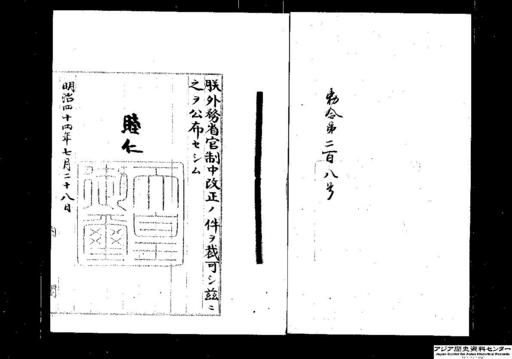 勅令第二百八号
朕外務省官制中改正ノ件ヲ裁可シ茲ニ
之ヲ公布セシム
睦仁
天皇御璽
明治四十四年七月二十八日
内閣
アジア歴史資料センター
Japan Center for Asian Historical Records